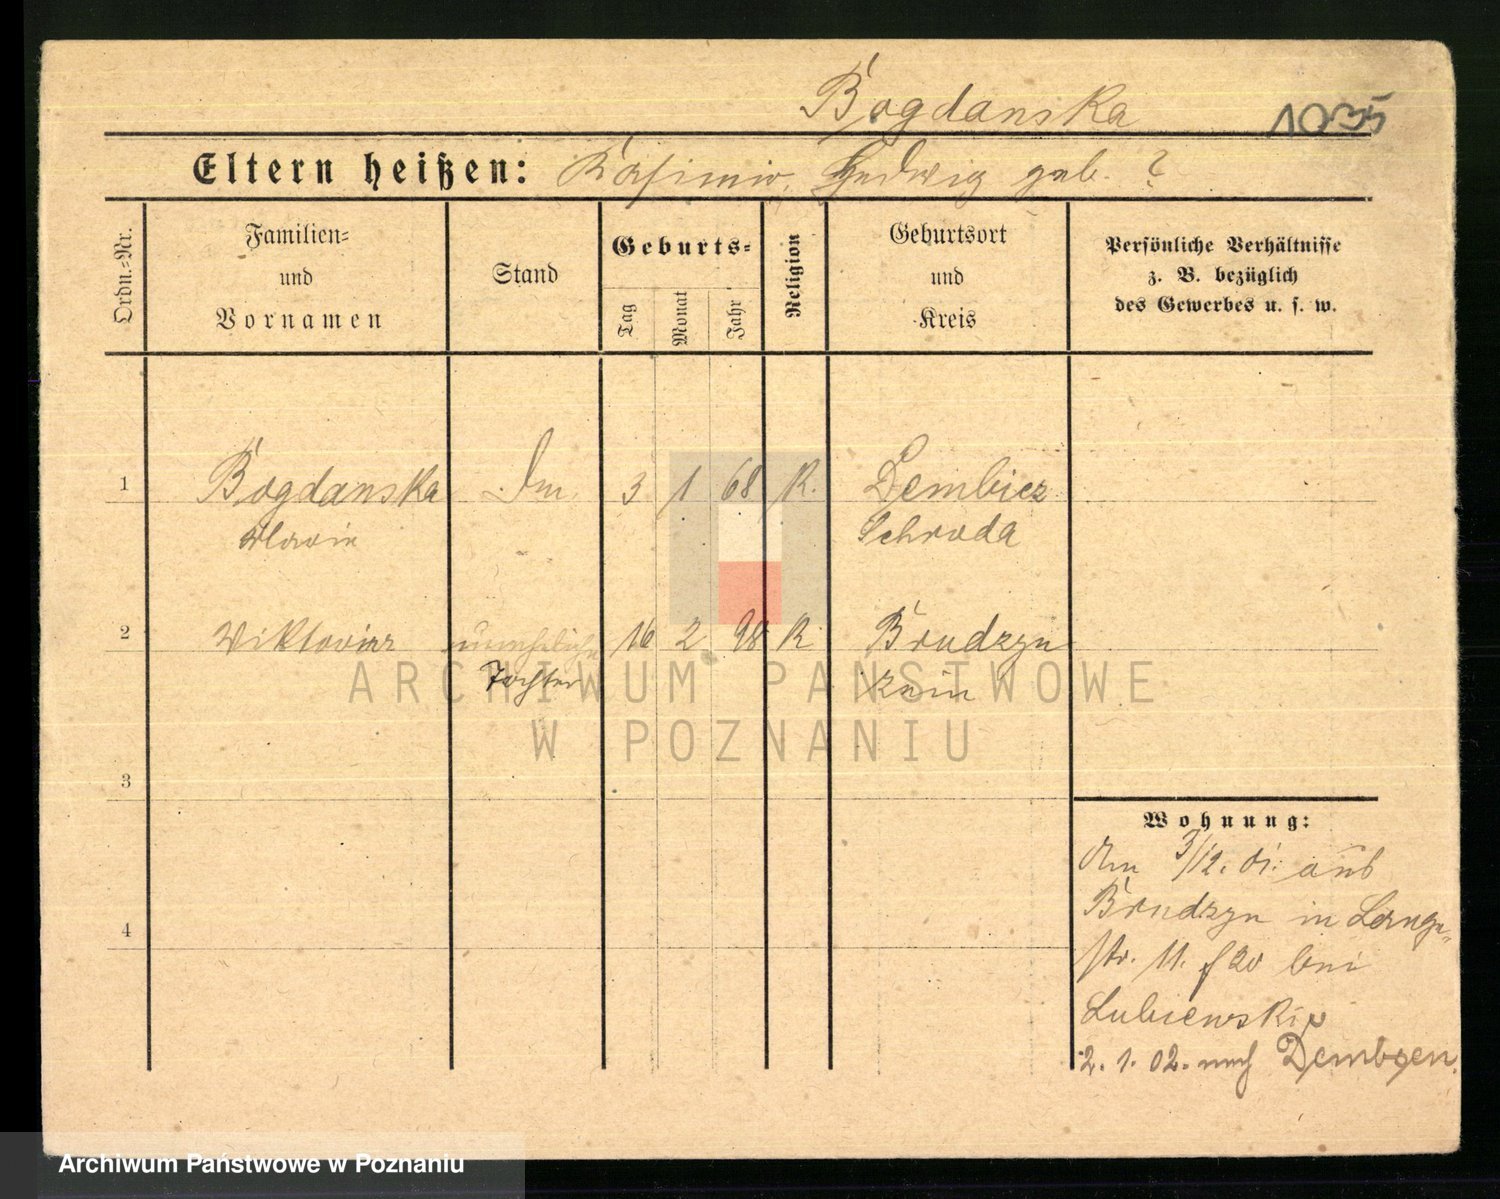 Bogdanska 1035
Eltern heißen: Kasimir, Hedwig geb. ?
Ordn.-Nr.
Familien-
und
Vornamen
Stand
Geburts-
Tag
Monat
Jahr
Religion
Geburtsort
und
Kreis
Persönliche Verhältnisse
z. B. bezüglich
des Gewerbes u. s. w.
1 Bogdanska 3 1 68 K. Dembicz
Marie Schroda
2 Viktoria unehelich 16 2 98 K Brudzyn
Tochter Znin
ARCHIWUM PAŃSTWOWE
W POZNANIU
3
Wohnung:
Am 3/12. 01. aus
Brudzyn in Lange-
4
str. 11. bei
Lubiewski
2. 1. 02. nach Dembsen.
Archiwum Państwowe w Poznaniu